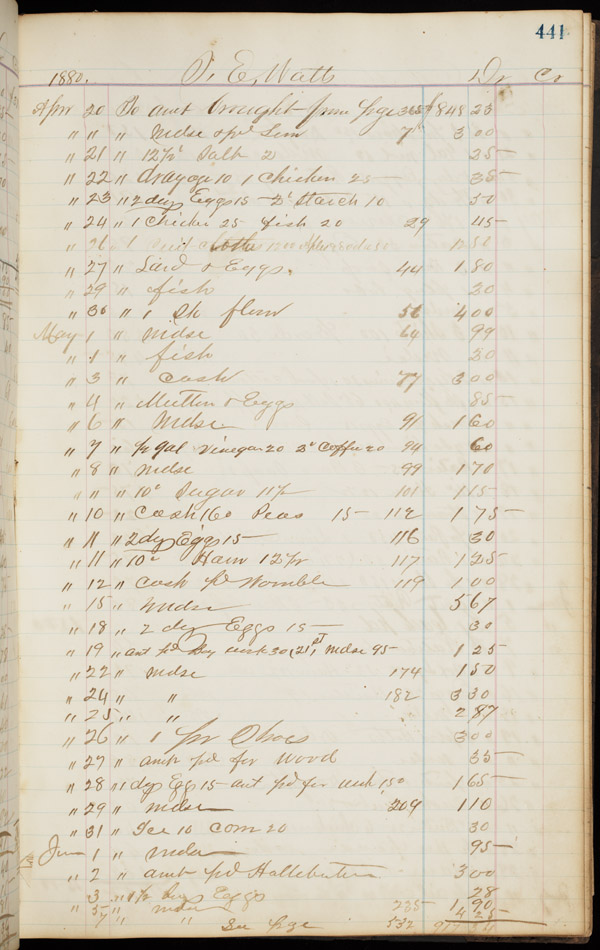 441
1880. T. E. Watts Dr Cr
Apr 20 To amt brought from pge $848 23
" " " Mdse 7 3 00
" 21 " 12½ Salt 2 25
" 22 " drayage 10 1 Chicken 25 35
" 23 " 2 dz Eggs 15 Starch 10 50
" 24 " 1 Chicken 25 fish 20 29 45
" 26
" 27 " Lard & Eggs 44 1 80
" 29 " fish 20
" 30 " 1 Sk flour 56 4 00
May 1 " Mdse 64 99
" 1 " fish 30
" 3 " cash 77 3 00
" 4 " Mutton & Eggs 85
" 6 " Mdse 91 1 60
" 7 " ½ gal vinegar 20 Coffee 20 94 60
" 8 " Mdse 99 1 70
" " " 10# Sugar 11½ 101 1 15
" 10 " Cash 160 Peas 15 112 1 75
" 11 " 2 dz Eggs 15 116 30
" 11 " 10# Ham 12½ 117 1 25
" 12 " cash pd Womble 119 1 00
" 15 " Mdse 5 67
" 18 " 2 dz Eggs 15 30
" 19 " amt pd 30 (21st, mdse 95 1 25
" 22 " mdse 174 1 50
" 24 " " 182 3 30
" 25 " " 2 87
" 26 " 1 pr Shoes 3 00
" 27 " amt pd for wood 35
" 28 " 1 dz Eggs 15 amt pd for 150 1 65
" 29 " mdse 209 1 10
" 31 " Ice 10 corn 20 30
Jun 1 " mdse 95
" 2 " amt pd 3 00
" 3 " Eggs 28
" 5 " mdse 235 1 90
" 7 " " See pge 532